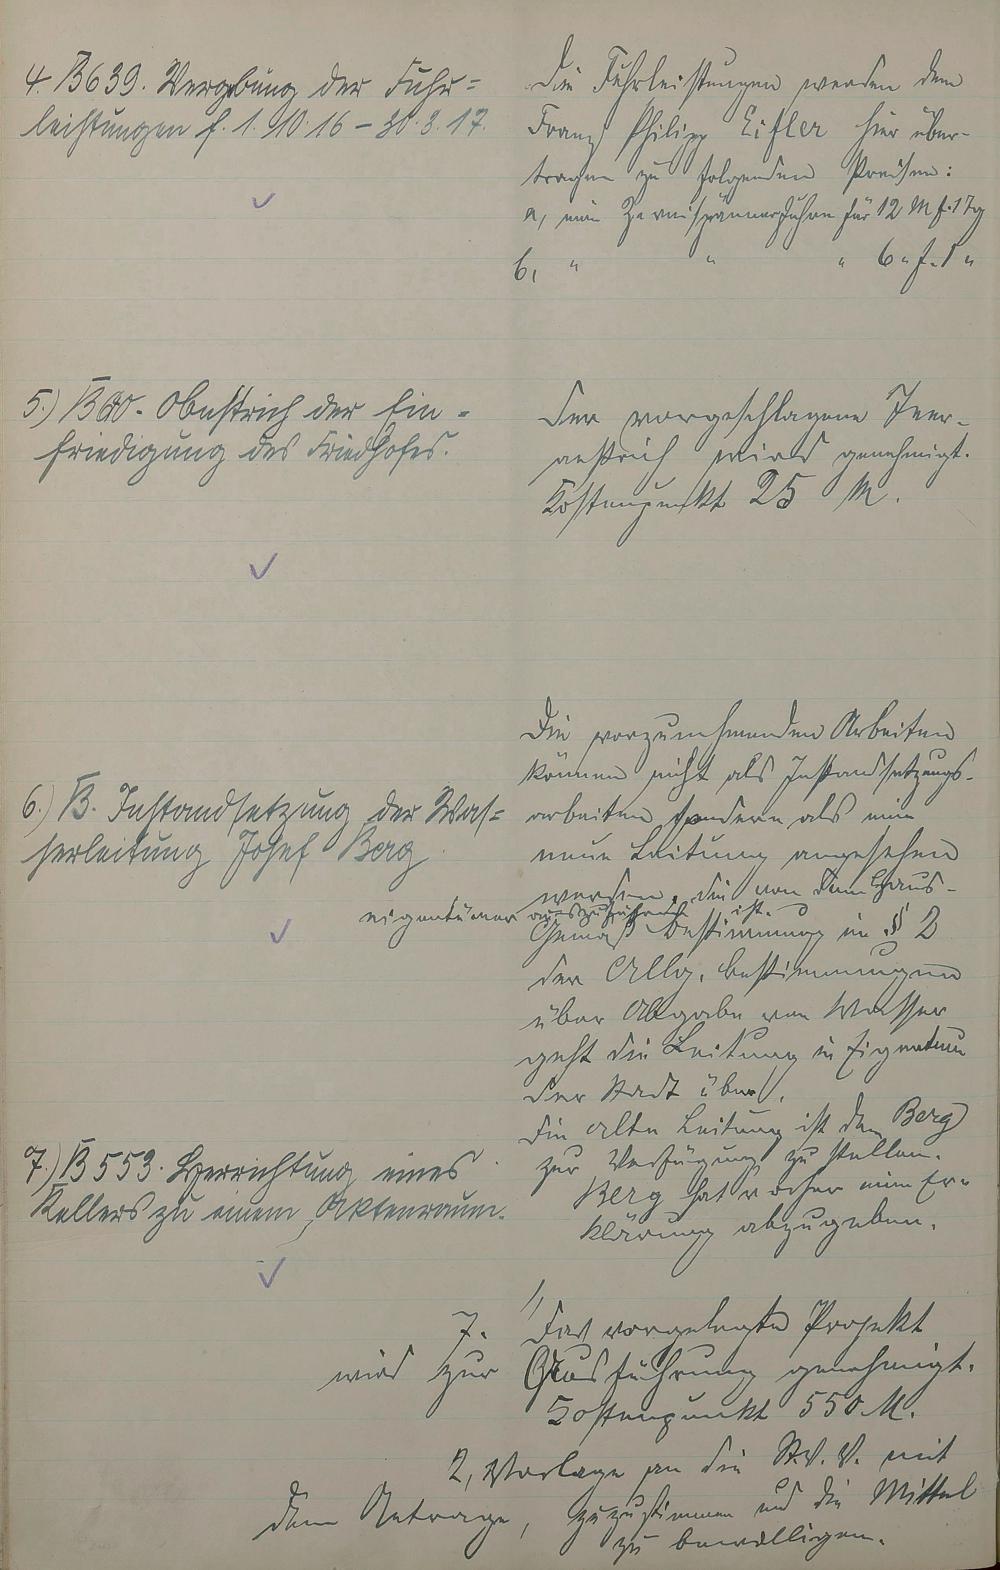 4. B 639. Vergebung der Fuhr=
leistungen f. 1.10.16 – 30.3.17.
Die Fuhrleistungen werden dem
Franz Philipp Eifler hier über-
tragen zu folgenden Preisen:
a, eine Zweispännerfuhre für 12 M f. 1 Tg
b, " " " 6 " f. 1 "
5.) B 60. Anstrich der Ein=
friedigung des Friedhofes.
Der vorgeschlagene Teer-
anstrich wird genehmigt.
Kostenpunkt 25 M.
6.) B. Instandsetzung der Was=
serleitung Josef Berg
Die vorzunehmenden Arbeiten
können nicht als Instandsetzungs-
arbeiten sondern als eine
neue Leitung angesehen
werden, die von dem Haus-
eigentümer auszuführen ist.
Gemäß Bestimmung in § 2
der Allg. Bestimmungen
über Abgabe von Wasser
geht die Leitung in Eigentum
der Stadt über.
Die alte Leitung ist dem Berg
zur Verfügung zu stellen.
Berg hat vorher eine Er-
klärung abzugeben.
7.) B 553. Herrichtung eines
Kellers zu einem Aktenraum.
7. 1, Das vorgelegte Projekt
wird zur Ausführung genehmigt.
Kostenpunkt 550 M.
2, Vorlage an die St.V.V. mit
dem Antrage, zuzustimmen und die Mittel
zu bewilligen.